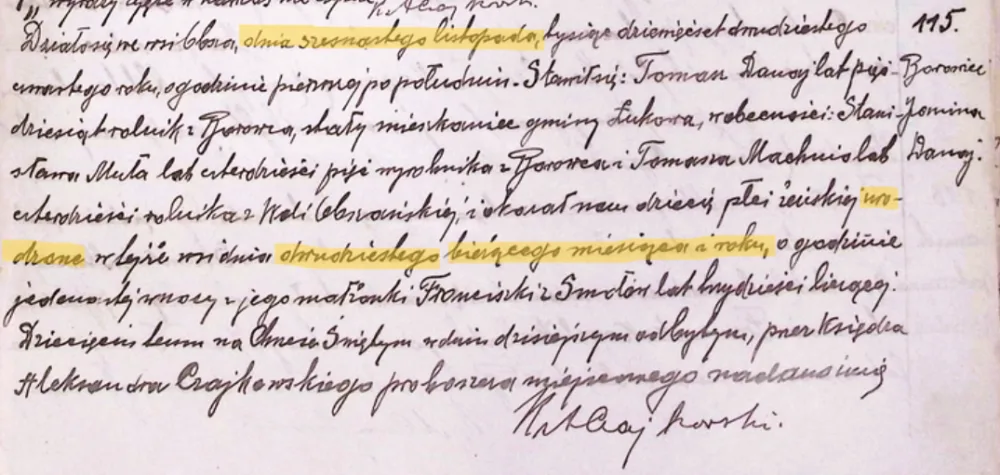 Ks A Czajkowski.
Działo się we wsi Obsza, dnia szesnastego listopada, tysiąc dziewięćset dwudziestego
115.
czwartego roku, o godzinie pierwszej po południu. Stawił się: Tomasz Danaj lat pięć-
Borowiec
dziesiąt rolnik z Borowca, stały mieszkaniec gminy Łukowa, w obecności: Stani-
Janina
sława Muta lat czterdzieści pięć wyrobnika z Borowca i Tomasza Machnio lat
Danaj.
czterdzieści rolnika z Woli Obszańskiej, i okazał nam dziecię płci żeńskiej uro-
dzone w tejże wsi dnia dwudziestego bieżącego miesiąca i roku, o godzinie
jedenastej w nocy z jego małżonki Franciszki z Smołów lat trzydzieści liczącej.
Dziecięciu temu na Chrzcie Świętym w dniu dzisiejszym odbytym, przez Księdza
Aleksandra Czajkowskiego proboszcza miejscowego nadano imię
Ks A Czajkowski.